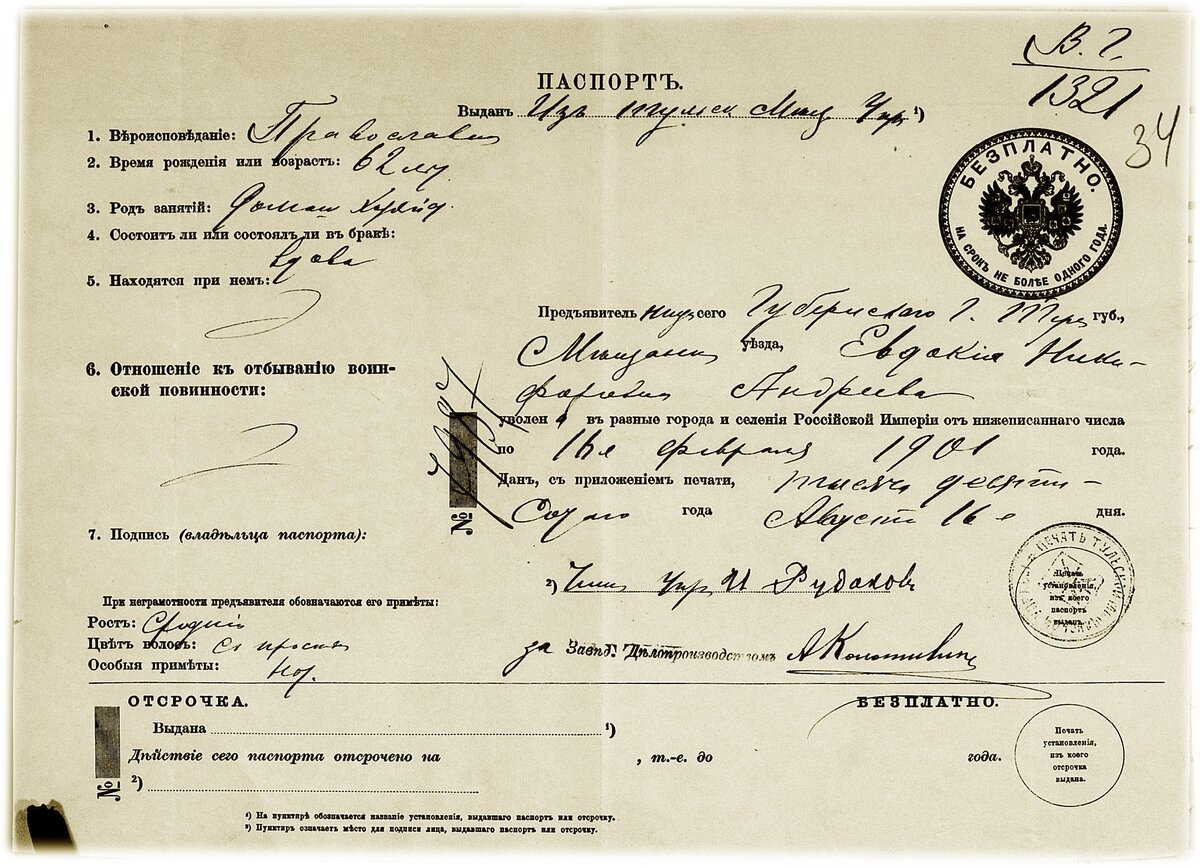 В. Г.
1321
34
ПАСПОРТЪ.
Выданъ Изъ Тульск Мѣщ Упр ¹)
1. Вѣроисповѣданіе: Православн
2. Время рожденія или возрастъ: 62 лѣт
3. Родъ занятій: Домаш
4. Состоитъ ли или состоялъ ли въ бракѣ:
вдова
5. Находятся при немъ:
6. Отношеніе къ отбыванію воин-
ской повинности:
7. Подпись (владѣльца паспорта):
При неграмотности предъявителя обозначаются его примѣты:
Ростъ: Средній
Цвѣтъ волосъ: съ просѣд
Особыя примѣты:
БЕЗПЛАТНО.
НА СРОКЪ НЕ БОЛѢЕ ОДНОГО ГОДА.
Предъявитель сего Губернскаго г. Тулы губ.,
Мѣщанк уѣзда, Евдокія Ники-
форовна Андреева
уволена въ разные города и селенія Россійской Имперіи отъ нижеписаннаго числа
по 16е Февраля 1901 года.
Данъ, съ приложеніемъ печати, тысяча девяти-
Сотаго года Августа 16 е дня.
№
²) Упр И Рудаковъ
за Завѣд. Дѣлопроизводствомъ
ПЕЧАТЬ ТУЛЬСКОЙ
Печать
установленія,
изъ коего
паспортъ
выданъ.
ОТСРОЧКА.
БЕЗПЛАТНО.
Выдана ¹)
Дѣйствіе сего паспорта отсрочено на , т.-е. до года.
№
²)
Печать
установленія,
изъ коего
отсрочка
выдана.
¹) На пунктирѣ обозначается названіе установленія, выдавшаго паспортъ или отсрочку.
²) Пунктиръ означаетъ мѣсто для подписи лица, выдавшаго паспортъ или отсрочку.